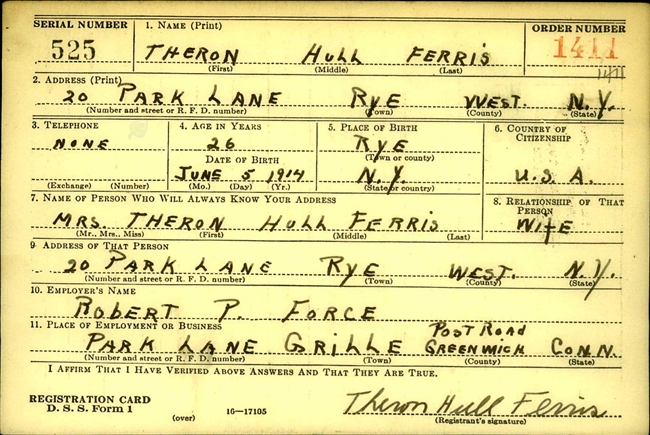 SERIAL NUMBER 1. NAME (Print) ORDER NUMBER
525 THERON HULL FERRIS 1411
(First) (Middle) (Last) 1411
2. ADDRESS (Print)
20 PARK LANE RYE WEST. N.Y.
(Number and street or R. F. D. number) (Town) (County) (State)
3. TELEPHONE 4. AGE IN YEARS 5. PLACE OF BIRTH 6. COUNTRY OF CITIZENSHIP
NONE 26 RYE
DATE OF BIRTH (Town or county)
JUNE 5 1914 N.Y. U.S.A.
(Exchange) (Number) (Mo.) (Day) (Yr.) (State or country)
7. NAME OF PERSON WHO WILL ALWAYS KNOW YOUR ADDRESS 8. RELATIONSHIP OF THAT PERSON
MRS. THERON HULL FERRIS WIFE
(Mr., Mrs., Miss) (First) (Middle) (Last)
9. ADDRESS OF THAT PERSON
20 PARK LANE RYE WEST. N.Y.
(Number and street or R. F. D. number) (Town) (County) (State)
10. EMPLOYER'S NAME
ROBERT P. FORCE
11. PLACE OF EMPLOYMENT OR BUSINESS POST ROAD
PARK LANE GRILLE GREENWICH CONN.
(Number and street or R. F. D. number) (Town) (County) (State)
I AFFIRM THAT I HAVE VERIFIED ABOVE ANSWERS AND THAT THEY ARE TRUE.
REGISTRATION CARD Theron Hull Ferris
D. S. S. Form 1 (over) 16—17105 (Registrant's signature)